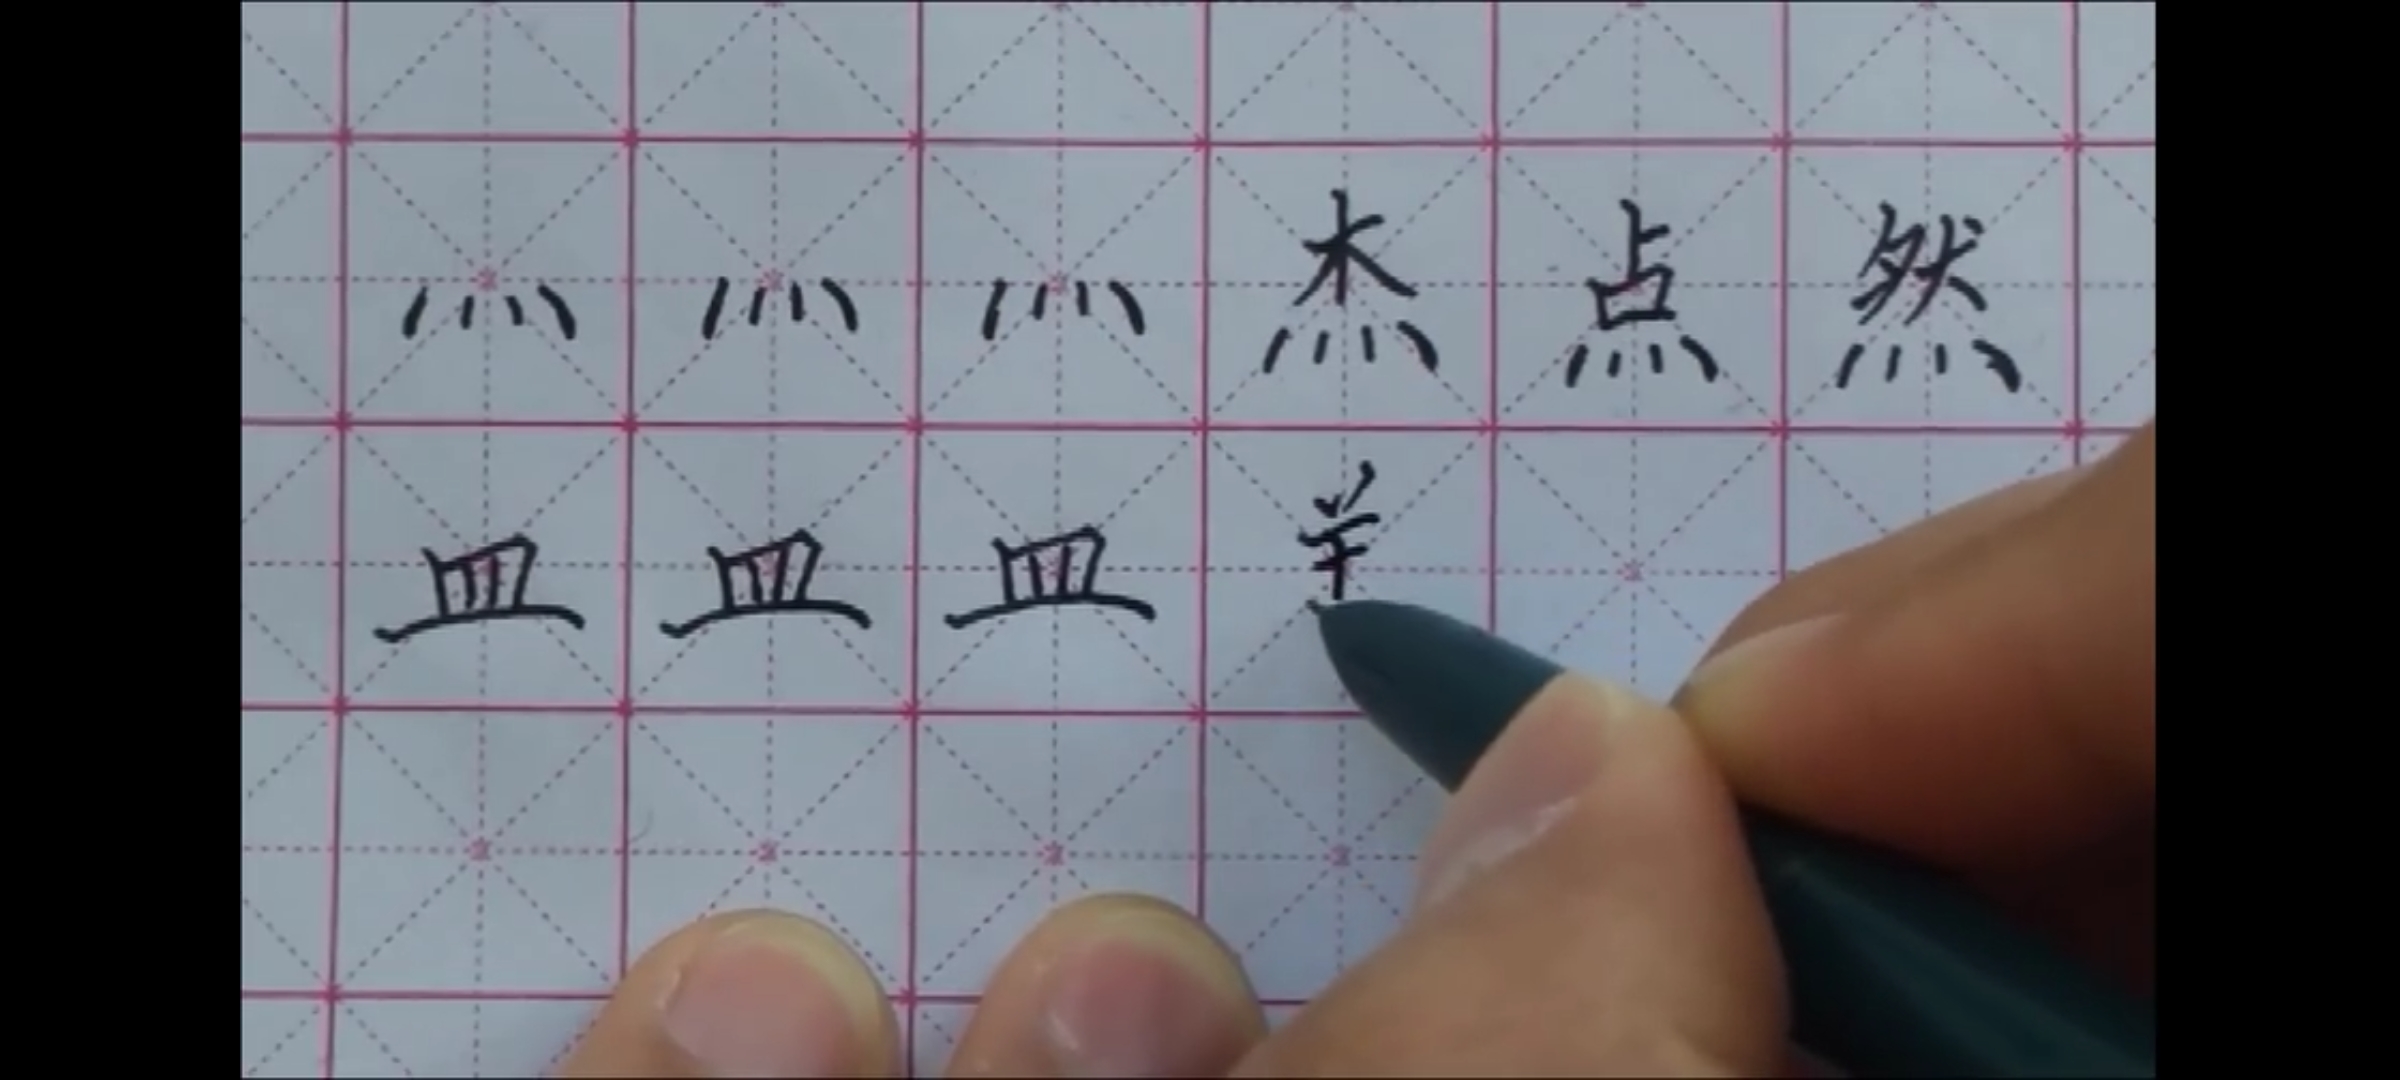 灬 灬 灬 杰 点 然
皿 皿 皿 羊